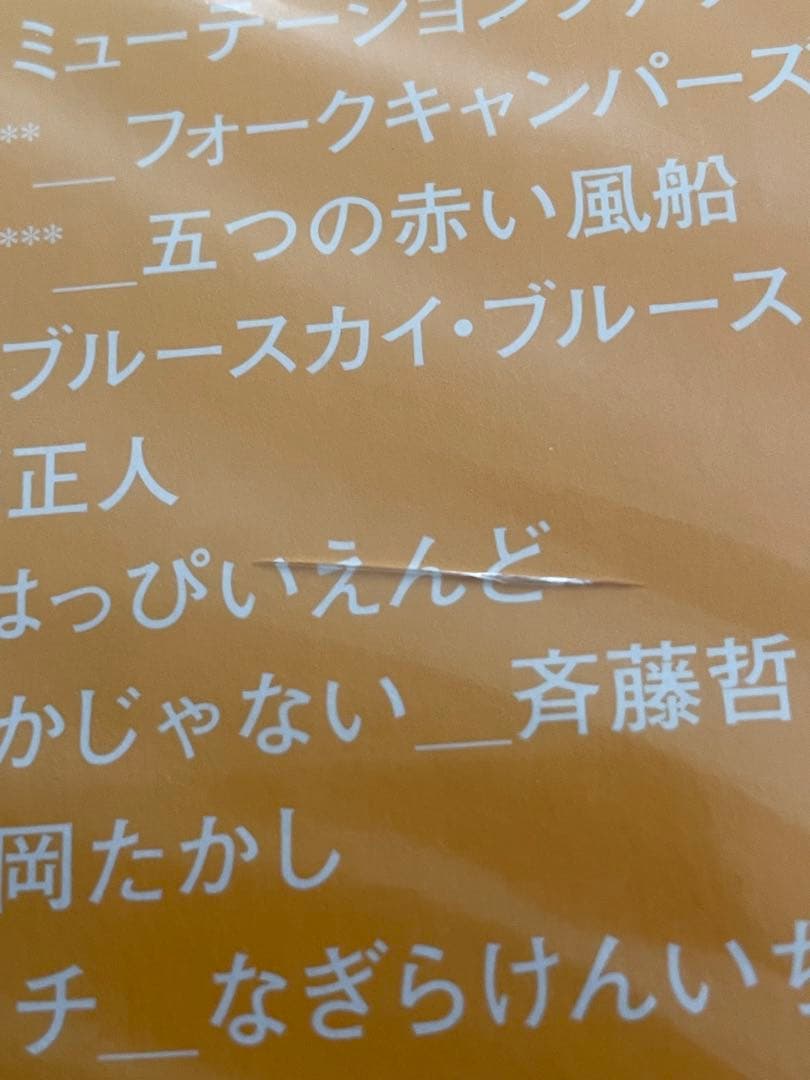 ミューテーションファク
**__フォークキャンパーズ
***__五つの赤い風船
ブルースカイ・ブルース
正人
はっぴいえんど
かじゃない__斉藤哲
岡たかし
チ__なぎらけんいち